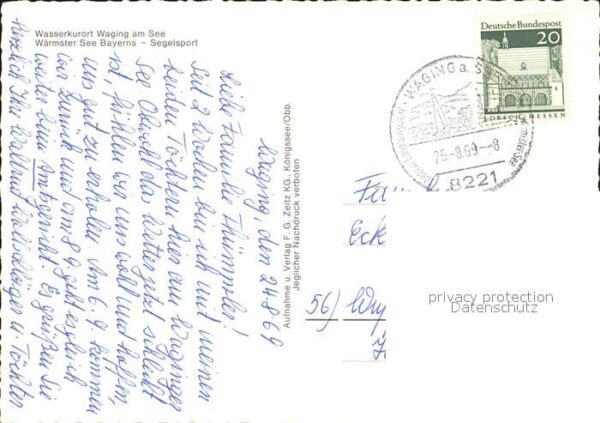 Wasserkurort Waging am See
Wärmster See Bayerns – Segelsport
Waging, den 24.8.69
Liebe Familie Thümmler!
Seit 2 Wochen bin ich mit meinen
beiden Töchtern hier am Waginger
See. Obwohl das Wetter jetzt schlecht
ist, fühlen wir uns wohl und hoffen,
uns gut zu erholen. Am 6.9. kommen
wir zurück und am 8.9. geht es gleich
weiter beim Amtsgericht. Es grüßen Sie
herzlich Ihr u. Töchter
Aufnahme u. Verlag F. G. Zeitz KG., Königssee/Obb.
Jeglicher Nachdruck verboten
Deutsche Bundespost
20
LORSCH/HESSEN
WAGING a. S
25.-8.69--8
8221
Fam
Eck
56) Wup
privacy protection
Datenschutz